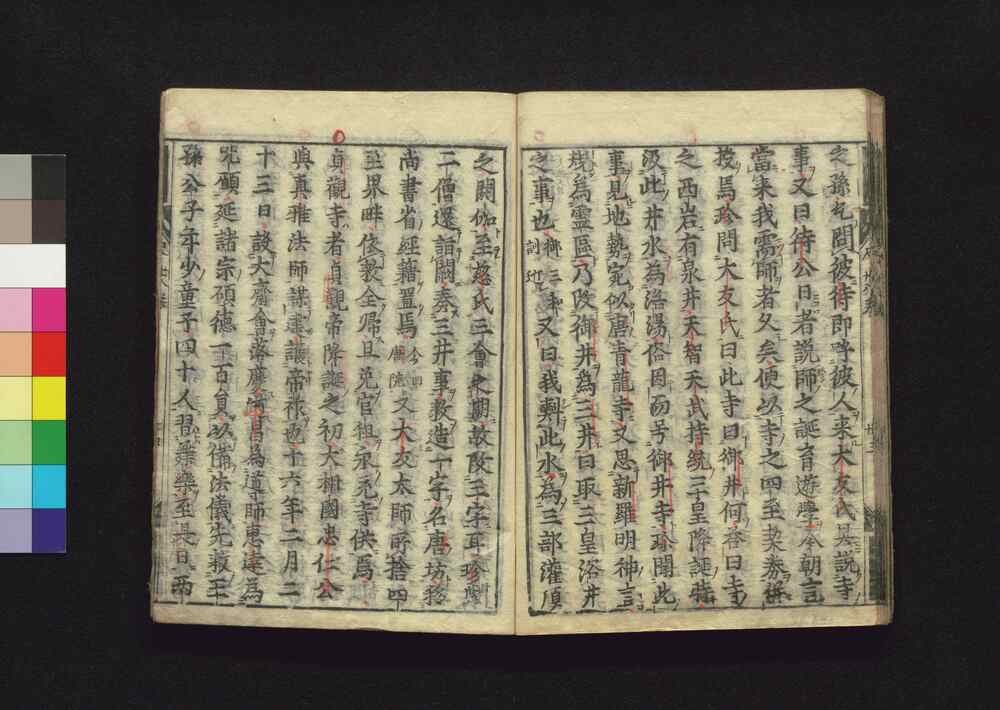 之孫乞問彼待即呼彼人来大友氏具説寺
事又曰待公日者説師之誕育遊學本朝言
當来我需師者久矣便以寺之四至契券
授焉珍問大友氏曰此寺曰御井何答曰寺
之西岩有泉井天智天武持統三皇降誕時
汲此井水為浴湯俗因而号御井寺珍聞此
事見地勢宛似唐青龍寺又思新羅明神言
為靈區乃改御井為三井曰取三皇浴井
之事也御三和訓近又曰我斟此水為三部灌頂
之閼伽至慈氏三會之期故改三字耳珍與
二僧還詣闕奏三井事敕造一字名唐坊移
尚書省經藉置焉今曲唐院又大友太師所捨四
至界畔依敕全帰且免官租永充寺供焉
貞觀寺者貞觀帝降誕之初大相國忠仁公
與真雅法師謀建護帝祚也十六年二月二
十三日設大齋會落慶宗睿為導師惠達為
咒願延諸宗碩德一百員以備法儀先敕王
孫公子年少童子四十人習雜樂至長日兩